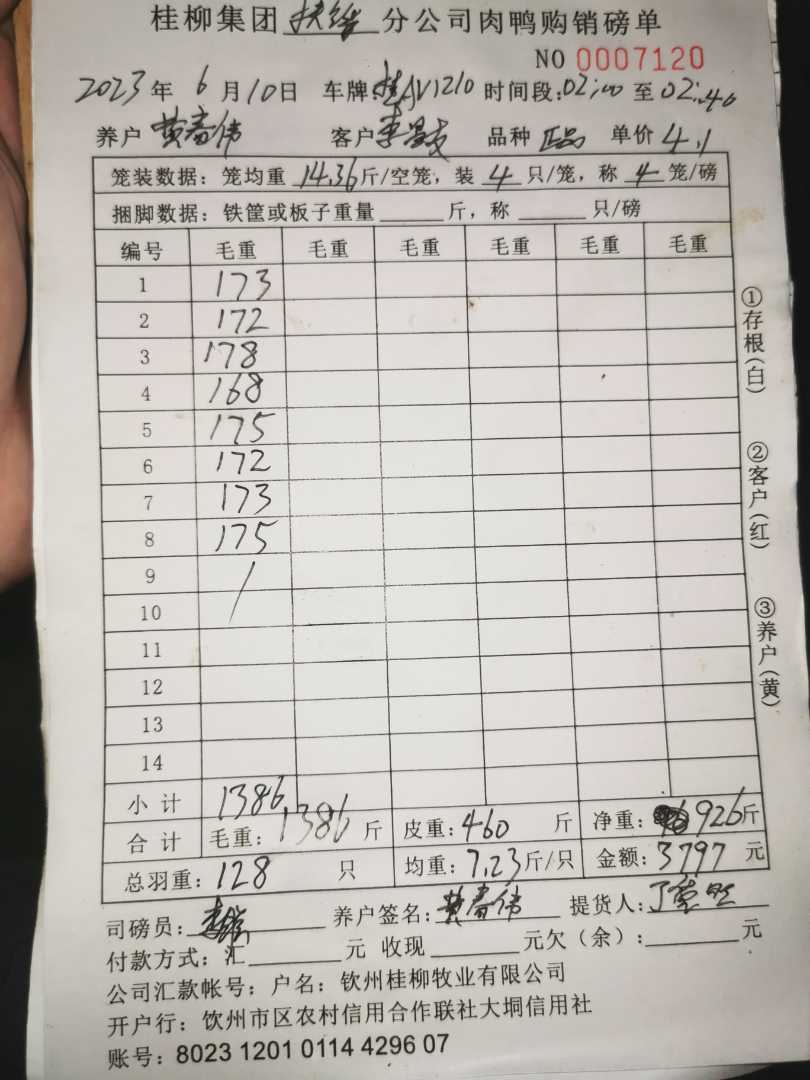 桂柳集团 扶绥 分公司肉鸭购销磅单
NO 0007120
2023年 6月10日 车牌:桂AV1210 时间段:02:00至02:40
养户 黄春伟 客户 李 品种 正品 单价 4.1
笼装数据:笼均重 14.36斤/空笼,装 4 只/笼,称 4 笼/磅
捆脚数据:铁筐或板子重量____斤,称____只/磅
编号 毛重 毛重 毛重 毛重 毛重 毛重
1 173
2 172
3 178
4 168
5 175
6 172
7 173
8 175
9 /
10
11
12
13
14
小计 1386
合计 毛重:1386斤 皮重:460斤 净重:926斤
总羽重:128只 均重:7.23斤/只 金额:3797元
司磅员: 养户签名:黄春伟 提货人:
付款方式:汇____元 收现____元欠(余):____元
公司汇款帐号:户名:钦州桂柳牧业有限公司
开户行:饮州市区农村信用合作联社大垌信用社
账号:8023 1201 0114 4296 07
①存根(白)
②客户(红)
③养户(黄)